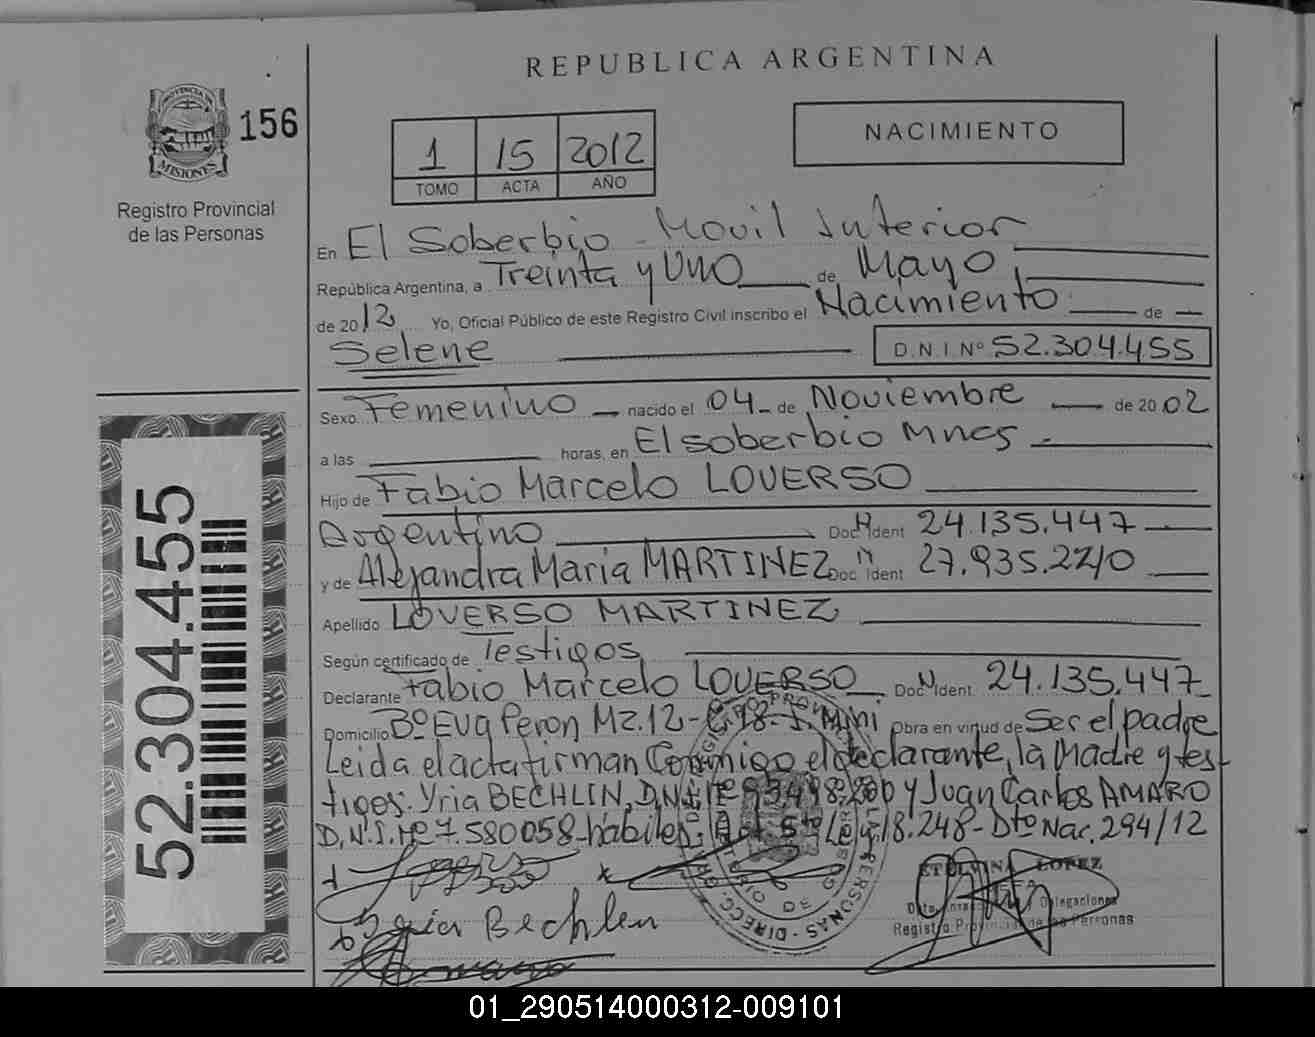 REPUBLICA ARGENTINA
PROVINCIA DE
MISIONES
156
Registro Provincial
de las Personas
1 15 2012
TOMO ACTA AÑO
NACIMIENTO
En El Soberbio - Movil Interior
República Argentina, a Treinta y Uno de Mayo
de 2012 Yo, Oficial Público de este Registro Civil inscribo el Nacimiento de
Selene D.N.I Nº 52.304.455
Sexo Femenino nacido el 04 - de Noviembre de 2002
a las horas, en El soberbio Mnes
Hijo de Fabio Marcelo LOVERSO
Argentino Doc N Ident 24.135.447
y de Alejandra Maria MARTINEZ Doc N Ident 27.935.220
Apellido LOVERSO MARTINEZ
Según certificado de Testigos
Declarante Fabio Marcelo LOVERSO Doc N Ident 24.135.447
Domicilio Bº Eva Peron Mz. 12 - Obra en virtud de Ser el padre
Leida el acta firman Conmigo el declarante, la Madre y tes-
tigos: Yria BECHLIN, D.N.I y Juan Carlos AMARO
D.N.I. Nº 7.580058 - habiles. Ley 18.248 - Dto Nac. 294/12
Bechlen
ETELVINA LOPEZ
Delegaciones
Registro Provincial de las Personas
52.304.455
01_290514000312-009101